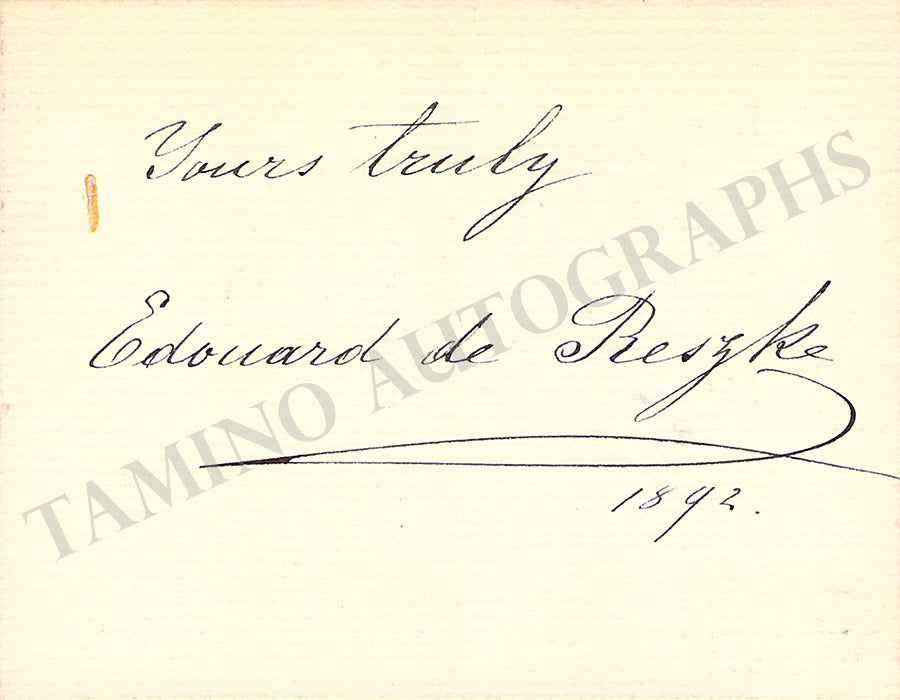 Yours truly
Edouard de Reszke
1892.
TAMINO AUTOGRAPHS